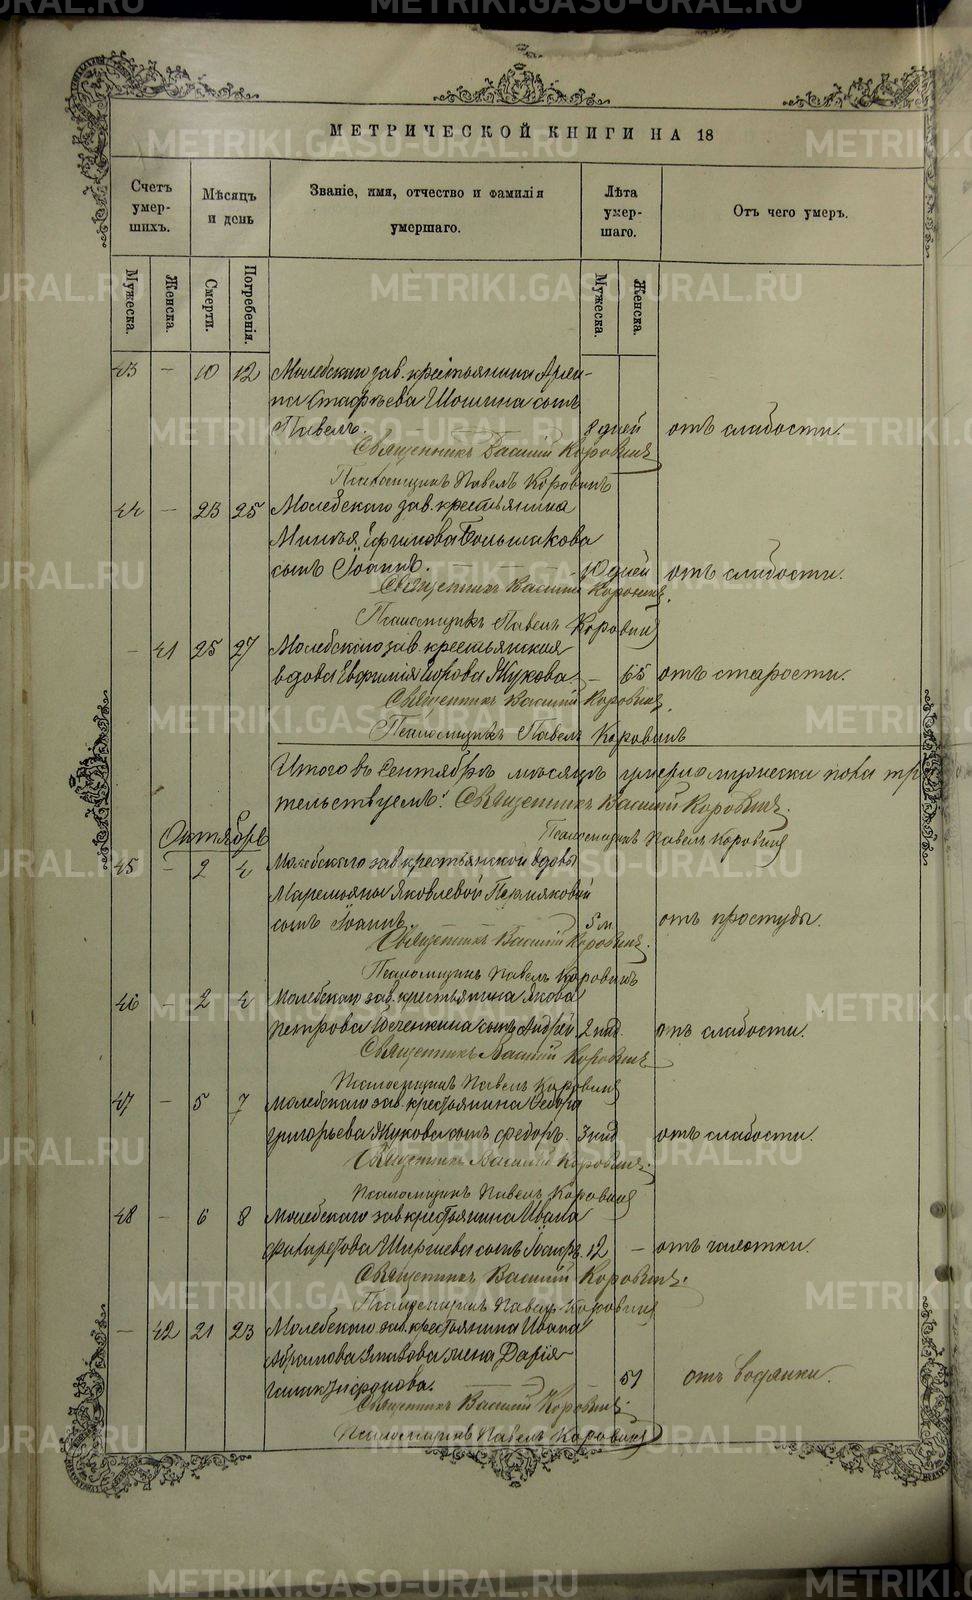 МЕТРИЧЕСКОЙ КНИГИ НА 18
Счетъ умер- шихъ.
Мѣсяцъ и день
Званіе, имя, отчество и фамилія умершаго.
Лѣта умер- шаго.
Отъ чего умеръ.
Мужеска.
Женска.
Смерти.
Погребенія.
Мужеска.
Женска.
43 – 10 12 Молебскаго зав. крестьянина
Шошина сынъ
Павелъ. 8 дней отъ слабости.
Священникъ Василій Коровинъ
Псаломщикъ Павелъ Коровинъ
44 – 23 25 Молебскаго зав. крестьянина
Большакова
сынъ Іоаннъ. 10 дней отъ слабости.
Священникъ Василій Коровинъ.
Псаломщикъ Павелъ Коровинъ
– 41 25 27 Молебскаго зав. крестьянская
вдова Евфимія Жукова – 65 отъ старости.
Священникъ Василій Коровинъ.
Псаломщикъ Павелъ Коровинъ
Итого въ Сентябрѣ мѣсяцѣ умерло мужеска пола тр
тельствуемъ: Священникъ Василій Коровинъ.
Псаломщикъ Павелъ Коровинъ
Октябрь
45 – 2 4 Молебскаго зав. крестьянской вдовы
Маремьяны Яковлевой Пермяковой
сынъ Іоаннъ. 5 м. отъ простуды.
Священникъ Василій Коровинъ.
Псаломщикъ Павелъ Коровинъ
46 – 2 4 Молебскаго зав. крестьянина Якова
Петрова сынъ Андрей 2 нед. отъ слабости.
Священникъ Василій Коровинъ
Псаломщикъ Павелъ Коровинъ
47 – 5 7 Молебскаго зав. крестьянина Ѳедора
Григорьева Жукова сынъ Ѳедоръ. 3 нед отъ слабости.
Священникъ Василій Коровинъ.
Псаломщикъ Павелъ Коровинъ
48 – 6 8 Молебскаго зав. крестьянина Ивана
сынъ 12 – отъ чахотки.
Священникъ Василій Коровинъ.
Псаломщикъ Павелъ Коровинъ
– 42 21 23 Молебскаго зав. крестьянина Ивана
Абрамова жена Дарія
51 отъ водянки.
Священникъ Василій Коровинъ.
Псаломщикъ Павелъ Коровинъ
METRIKI.GASO-URAL.RU